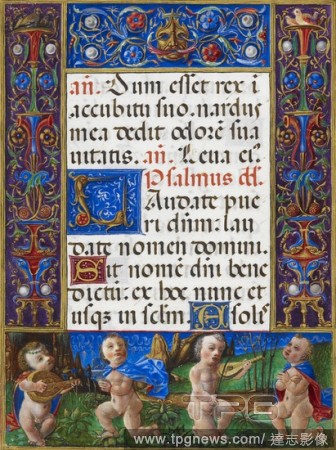 an̄. Dum esset rex i
accubitu suo. nardus
mea dedit odorē sua
uitatis. an̄. Leua eiꝰ.
Psalmus dd.
Laudate pue
ri dn̄m: lau
date nomen domini.
Sit nomē dn̄i bene
dictū: ex hoc nunc et
usqꝫ in sclm̄ A solis
TPG
www.tpgnews.com/達志影像